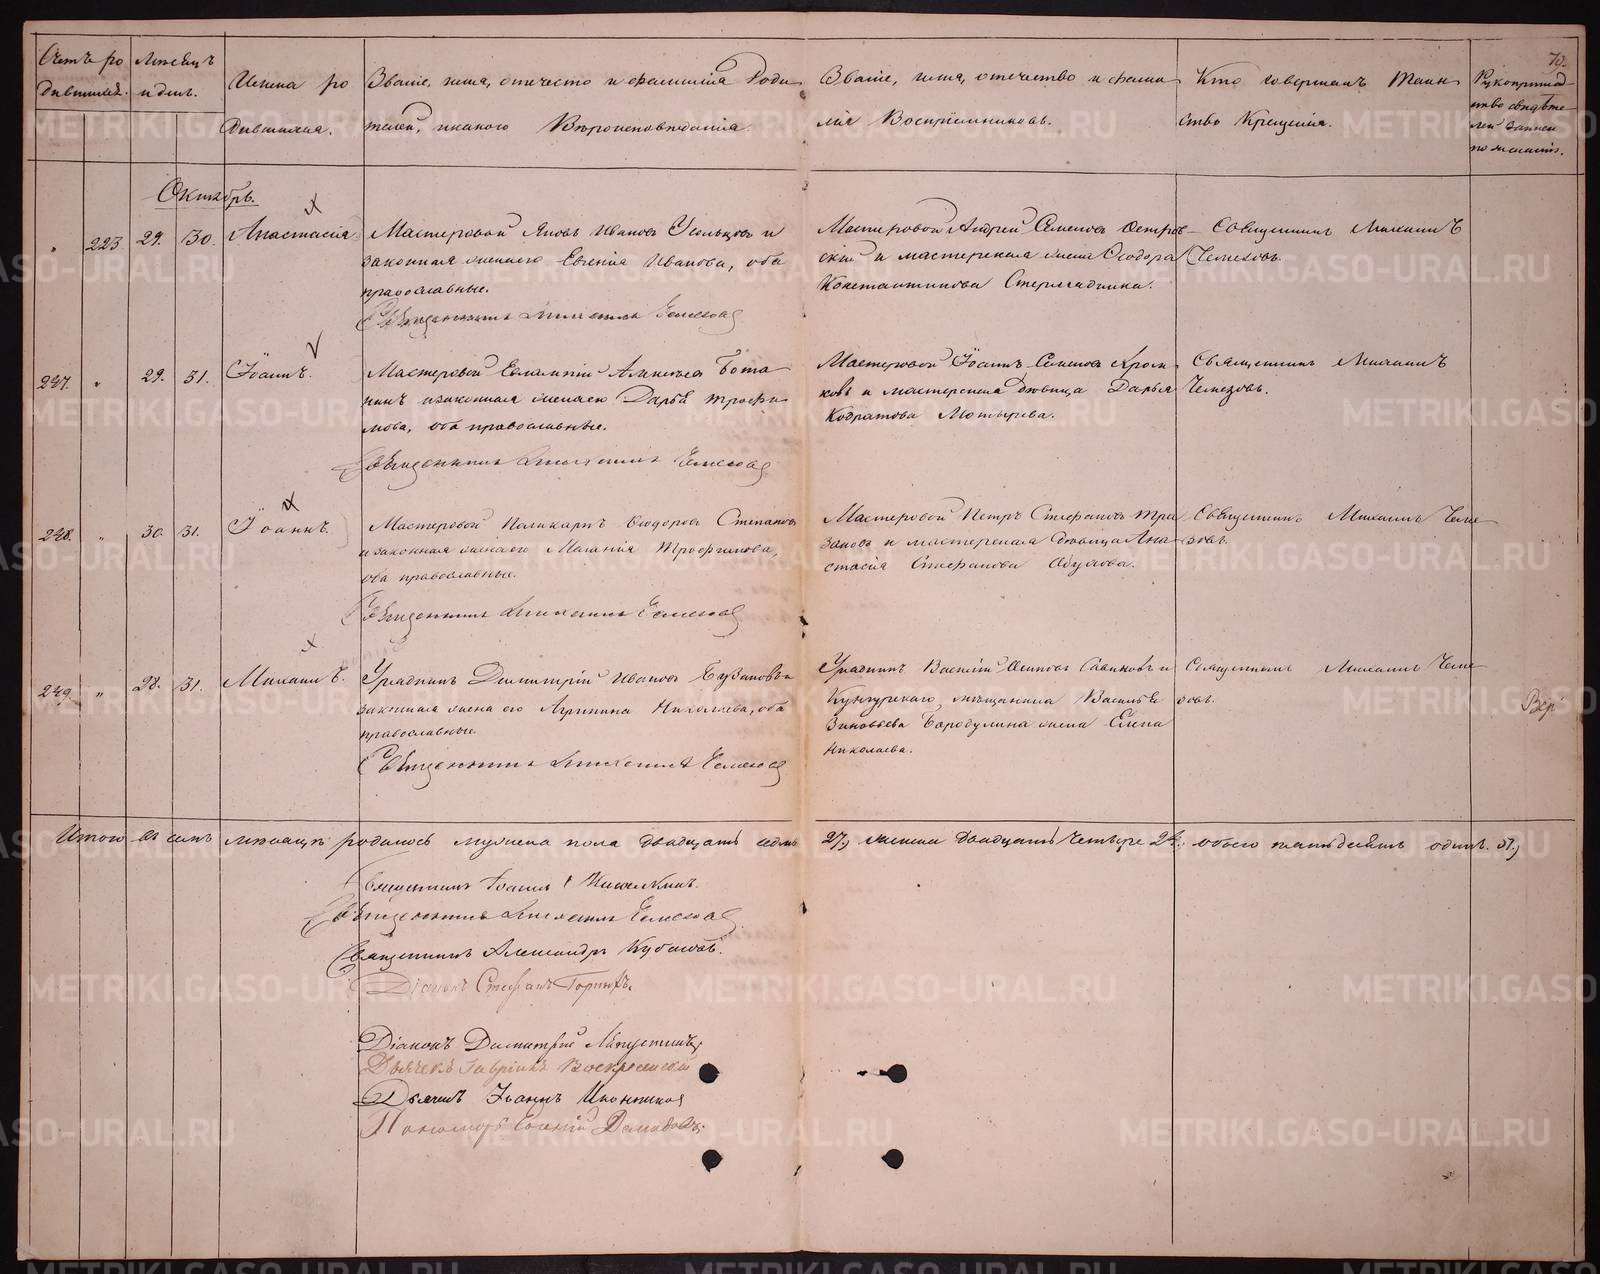 70.
Счетъ ро
дившихся.
Мѣсяцъ
и день.
Имена ро
дившихся.
Званіе, имя, отчество и фамилія роди
телей, и какого Вѣроисповѣданія.
Званіе, имя, отчество и фами
лія Воспріемниковъ.
Кто совершалъ Таин
ство Крещенія.
Рукоприклад
ство свидѣте
лей записи
по желанію.
Октябрь.
" 223 29. 30. Анастасія.
Мастеровой Яковъ Ивановъ Усольцовъ и
законная жена его Евгенія Иванова, оба
православные.
Священникъ Михаилъ Чемезовъ
Мастеровой Андрей Семеновъ Остров
скій и мастерская жена Ѳеодора
Константинова
Священникъ Михаилъ
Чемезовъ.
247. " 29. 31. Іоаннъ.
Мастеровой Евлампій
и законная жена его Дарья Трофи
мова, оба православные.
Священникъ Михаилъ Чемезовъ
Мастеровой Іоаннъ Семеновъ
и мастерская дѣвица Дарья
Кодратова
Священникъ Михаилъ
Чемезовъ.
248. " 30. 31. Іоаннъ.
Мастеровой Поликарпъ Ѳеодоровъ Степановъ
и законная жена его Меланія Трофимова,
оба православные.
Священникъ Михаилъ Чемезовъ
Мастеровой Петръ Стефановъ
и мастерская дѣвица Ана
стасія Стефанова
Священникъ Михаилъ Чеме
зовъ.
249. " 28. 31. Михаилъ.
Урядникъ Димитрій Ивановъ Бузановъ и
законная жена его Агрипина Николаева, оба
православные.
Священникъ Михаилъ Чемезовъ
Урядникъ Василій Осиповъ Савиковъ и
Кунгурскаго мѣщанина Василья
Зиновьева Бородулина жена Елена
Николаева.
Священникъ Михаилъ Чеме
зовъ.
Вѣр
Итого въ семъ мѣсяцѣ родилось мужеска пола двадцать семь 27, женска двадцать четыре 24, обоего пятьдесятъ одинъ. 51,
Священникъ Іоаннъ
Священникъ Михаилъ Чемезовъ
Священникъ Александръ
Діаконъ Стефанъ
Діаконъ Димитрій
Дьячекъ Гавріилъ Воскресенскій
Дьячекъ Іоаннъ
Пономарь
METRIKI.GASO-URAL.RU